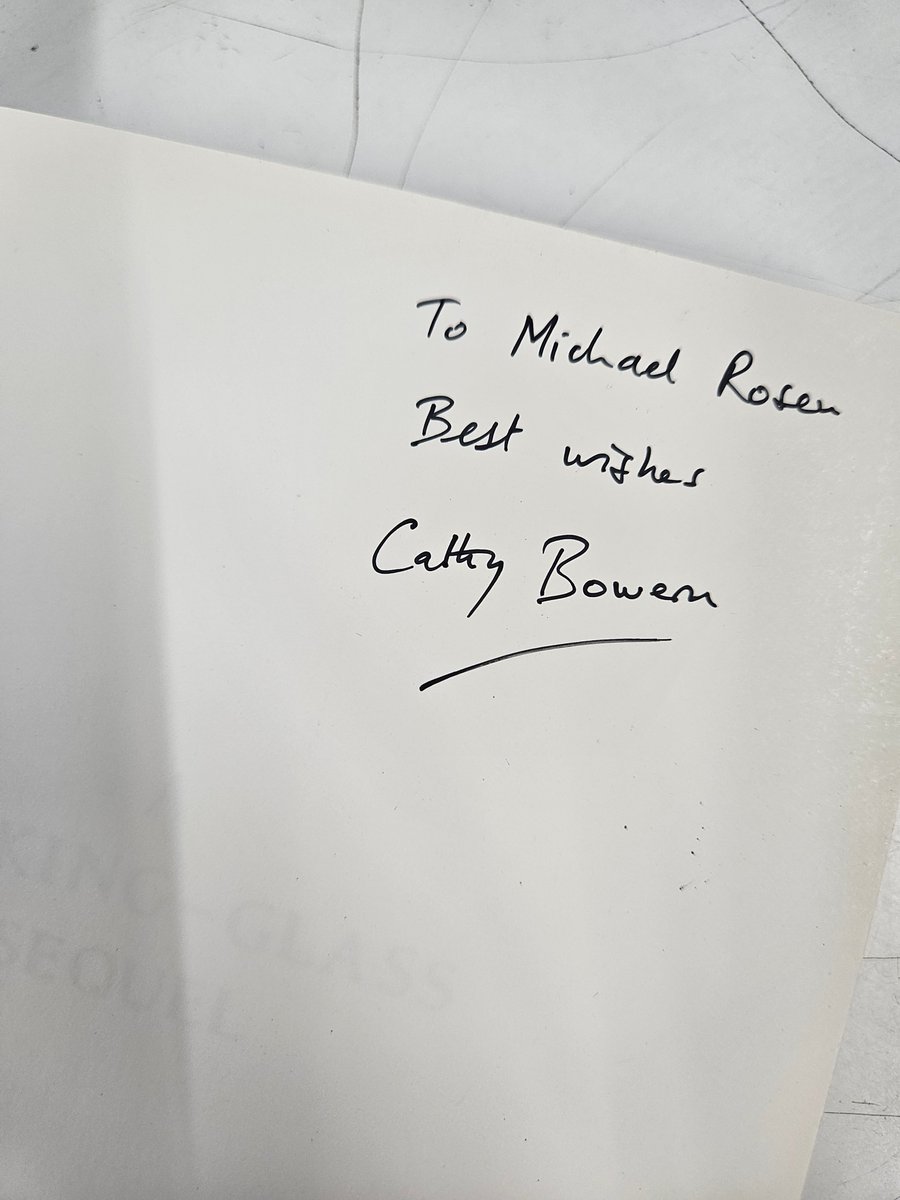 To Michael Rosen
Best wishes
Cathy Bowern
CLASS